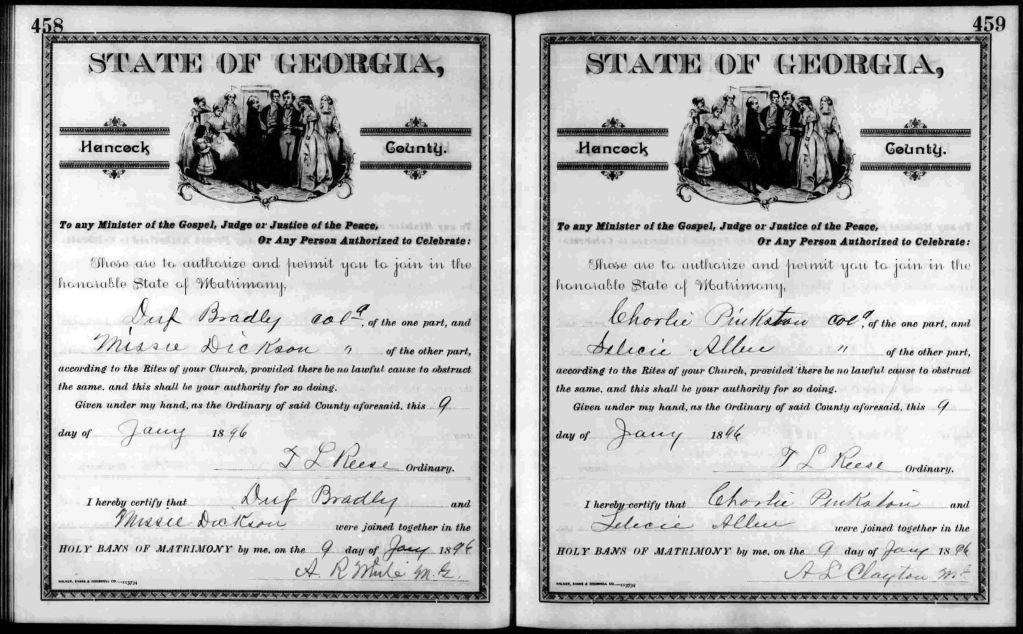 458
STATE OF GEORGIA,
Hancock County.
To any Minister of the Gospel, Judge or Justice of the Peace,
Or Any Person Authorized to Celebrate:
These are to authorize and permit you to join in the
honorable State of Matrimony,
Duf Bradly col'd, of the one part, and
Missie Dickson " of the other part,
according to the Rites of your Church, provided there be no lawful cause to obstruct
the same, and this shall be your authority for so doing.
Given under my hand, as the Ordinary of said County aforesaid, this 9
day of Jany 1896
T L Reese Ordinary.
I hereby certify that Duf Bradly and
Missie Dickson were joined together in the
HOLY BANS OF MATRIMONY by me, on the 9 day of Jany 1896
A. R. M.G.
459
STATE OF GEORGIA,
Hancock County.
To any Minister of the Gospel, Judge or Justice of the Peace,
Or Any Person Authorized to Celebrate:
These are to authorize and permit you to join in the
honorable State of Matrimony,
Charlie Pinkston col'd, of the one part, and
Allen " of the other part,
according to the Rites of your Church, provided there be no lawful cause to obstruct
the same, and this shall be your authority for so doing.
Given under my hand, as the Ordinary of said County aforesaid, this 9
day of Jany 1896
T L Reese Ordinary.
I hereby certify that Charlie Pinkston and
Allen were joined together in the
HOLY BANS OF MATRIMONY by me, on the 9 day of Jany 1896
A L Clayton